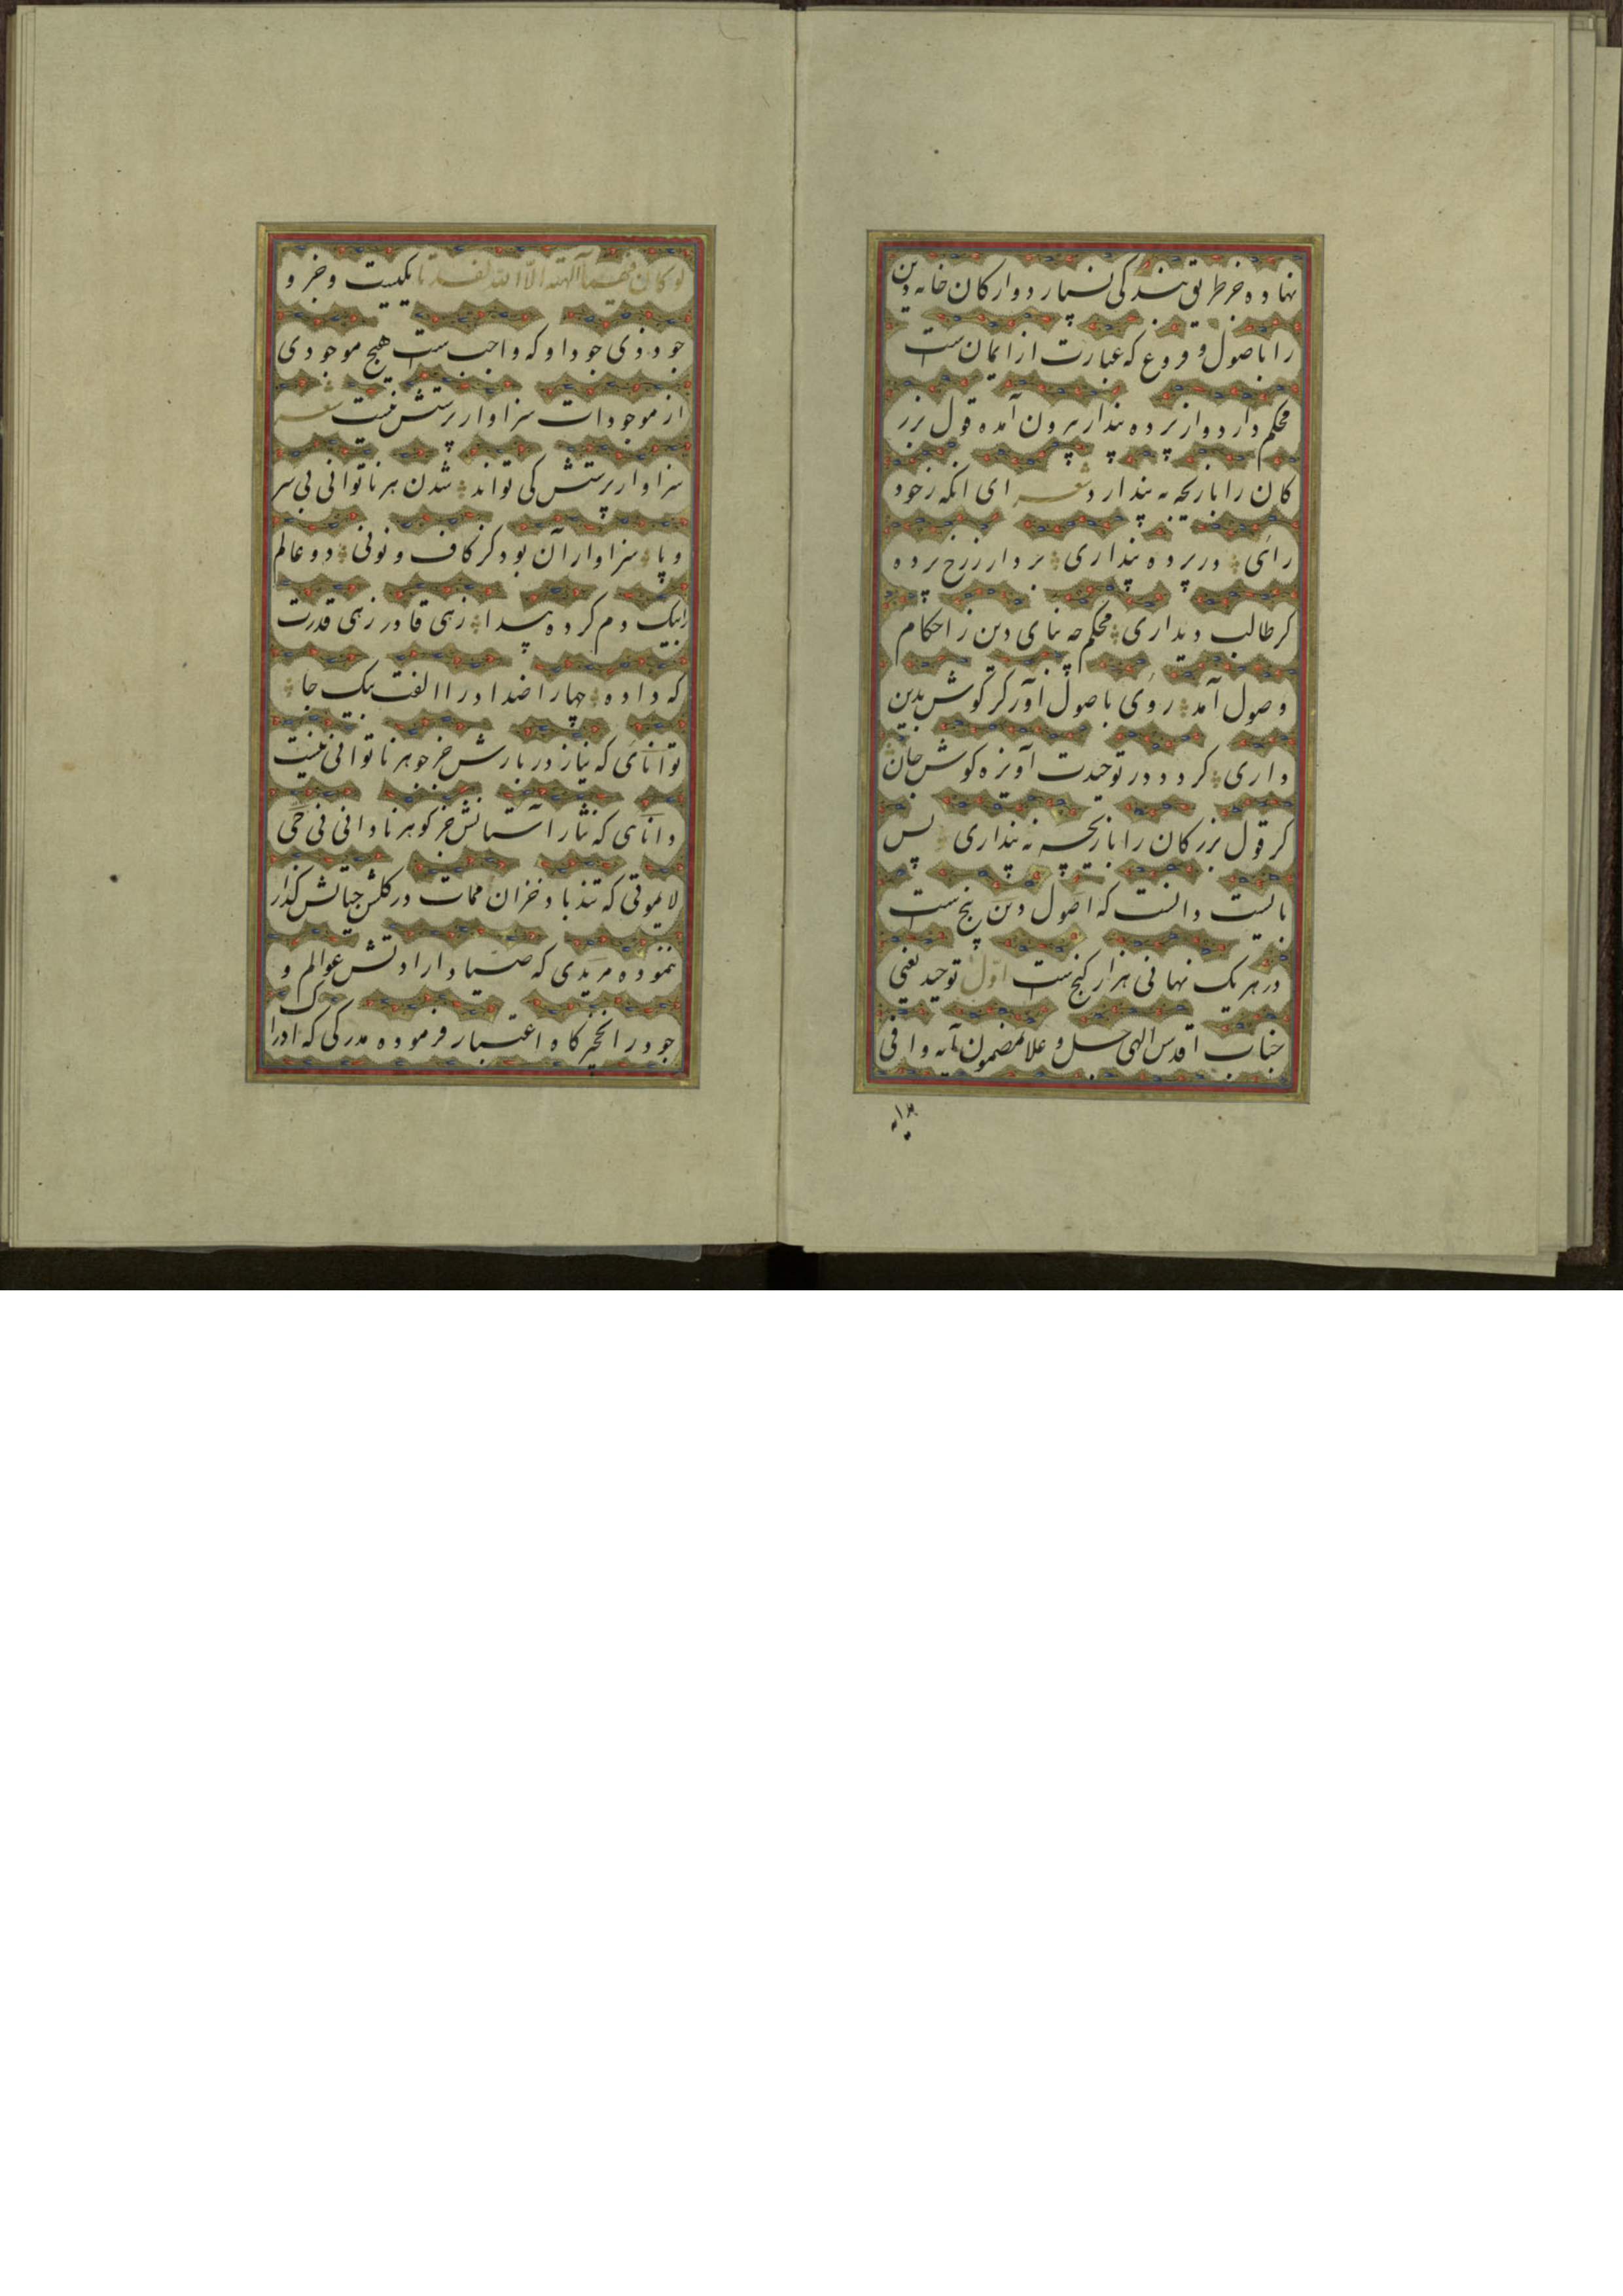 نهاده جز طریق بندگی نسپارد و ارکان خانه دین
را باصول و فروع که عبارت از ایمان ست
محکم دارد و از پرده پندار برون آمده قول بزر
کان را بازیچه نه پندارد شعر ای انکه زخود
رائی در پرده پنداری بردار ز رخ پرده
کر طالب دیداری محکم چه بنای دین ز احکام
وصول آمد روی باصول آور کر گوش بدین
داری کردد در توحیدت آویزه کوش جان
کر قول بزرکان را بازیچه نه پنداری پس
بایست دانست که اصول دین پنج ست
در هر یک نهانی هزار کنج ست اول توحید یعنی
جناب اقدس الهی جل و علا بمضمون آیه وافی
لو کان فیهما آلهة الا الله لفسدتا یکیست و جز و
جود ذی جود او که واجب ست هیچ موجودی
از موجودات سزاوار پرستش نیست شعر
سزاوار پرستش کی تواند شدن هر ناتوانی بی سر
و پا سزاوار آن بود کز کاف و نونی دو عالم
رابیک دم کرده پیدا زهی قادر زهی قدرت
که داده چهار اضداد را الفت بیک جا
توانائی که نیاز دربارش جز جوهر ناتوانی نیست
دانائی که نثار آستانش جز کوهر نادانی نی حی
لایموتی که تندباد خزان ممات در کلشن حیاتش کذار
ننموده مریدی که صیاد ارادتش عوالم و
جود را نخچیرکاه اعتبار فرموده مدرکی که ادرا
ک